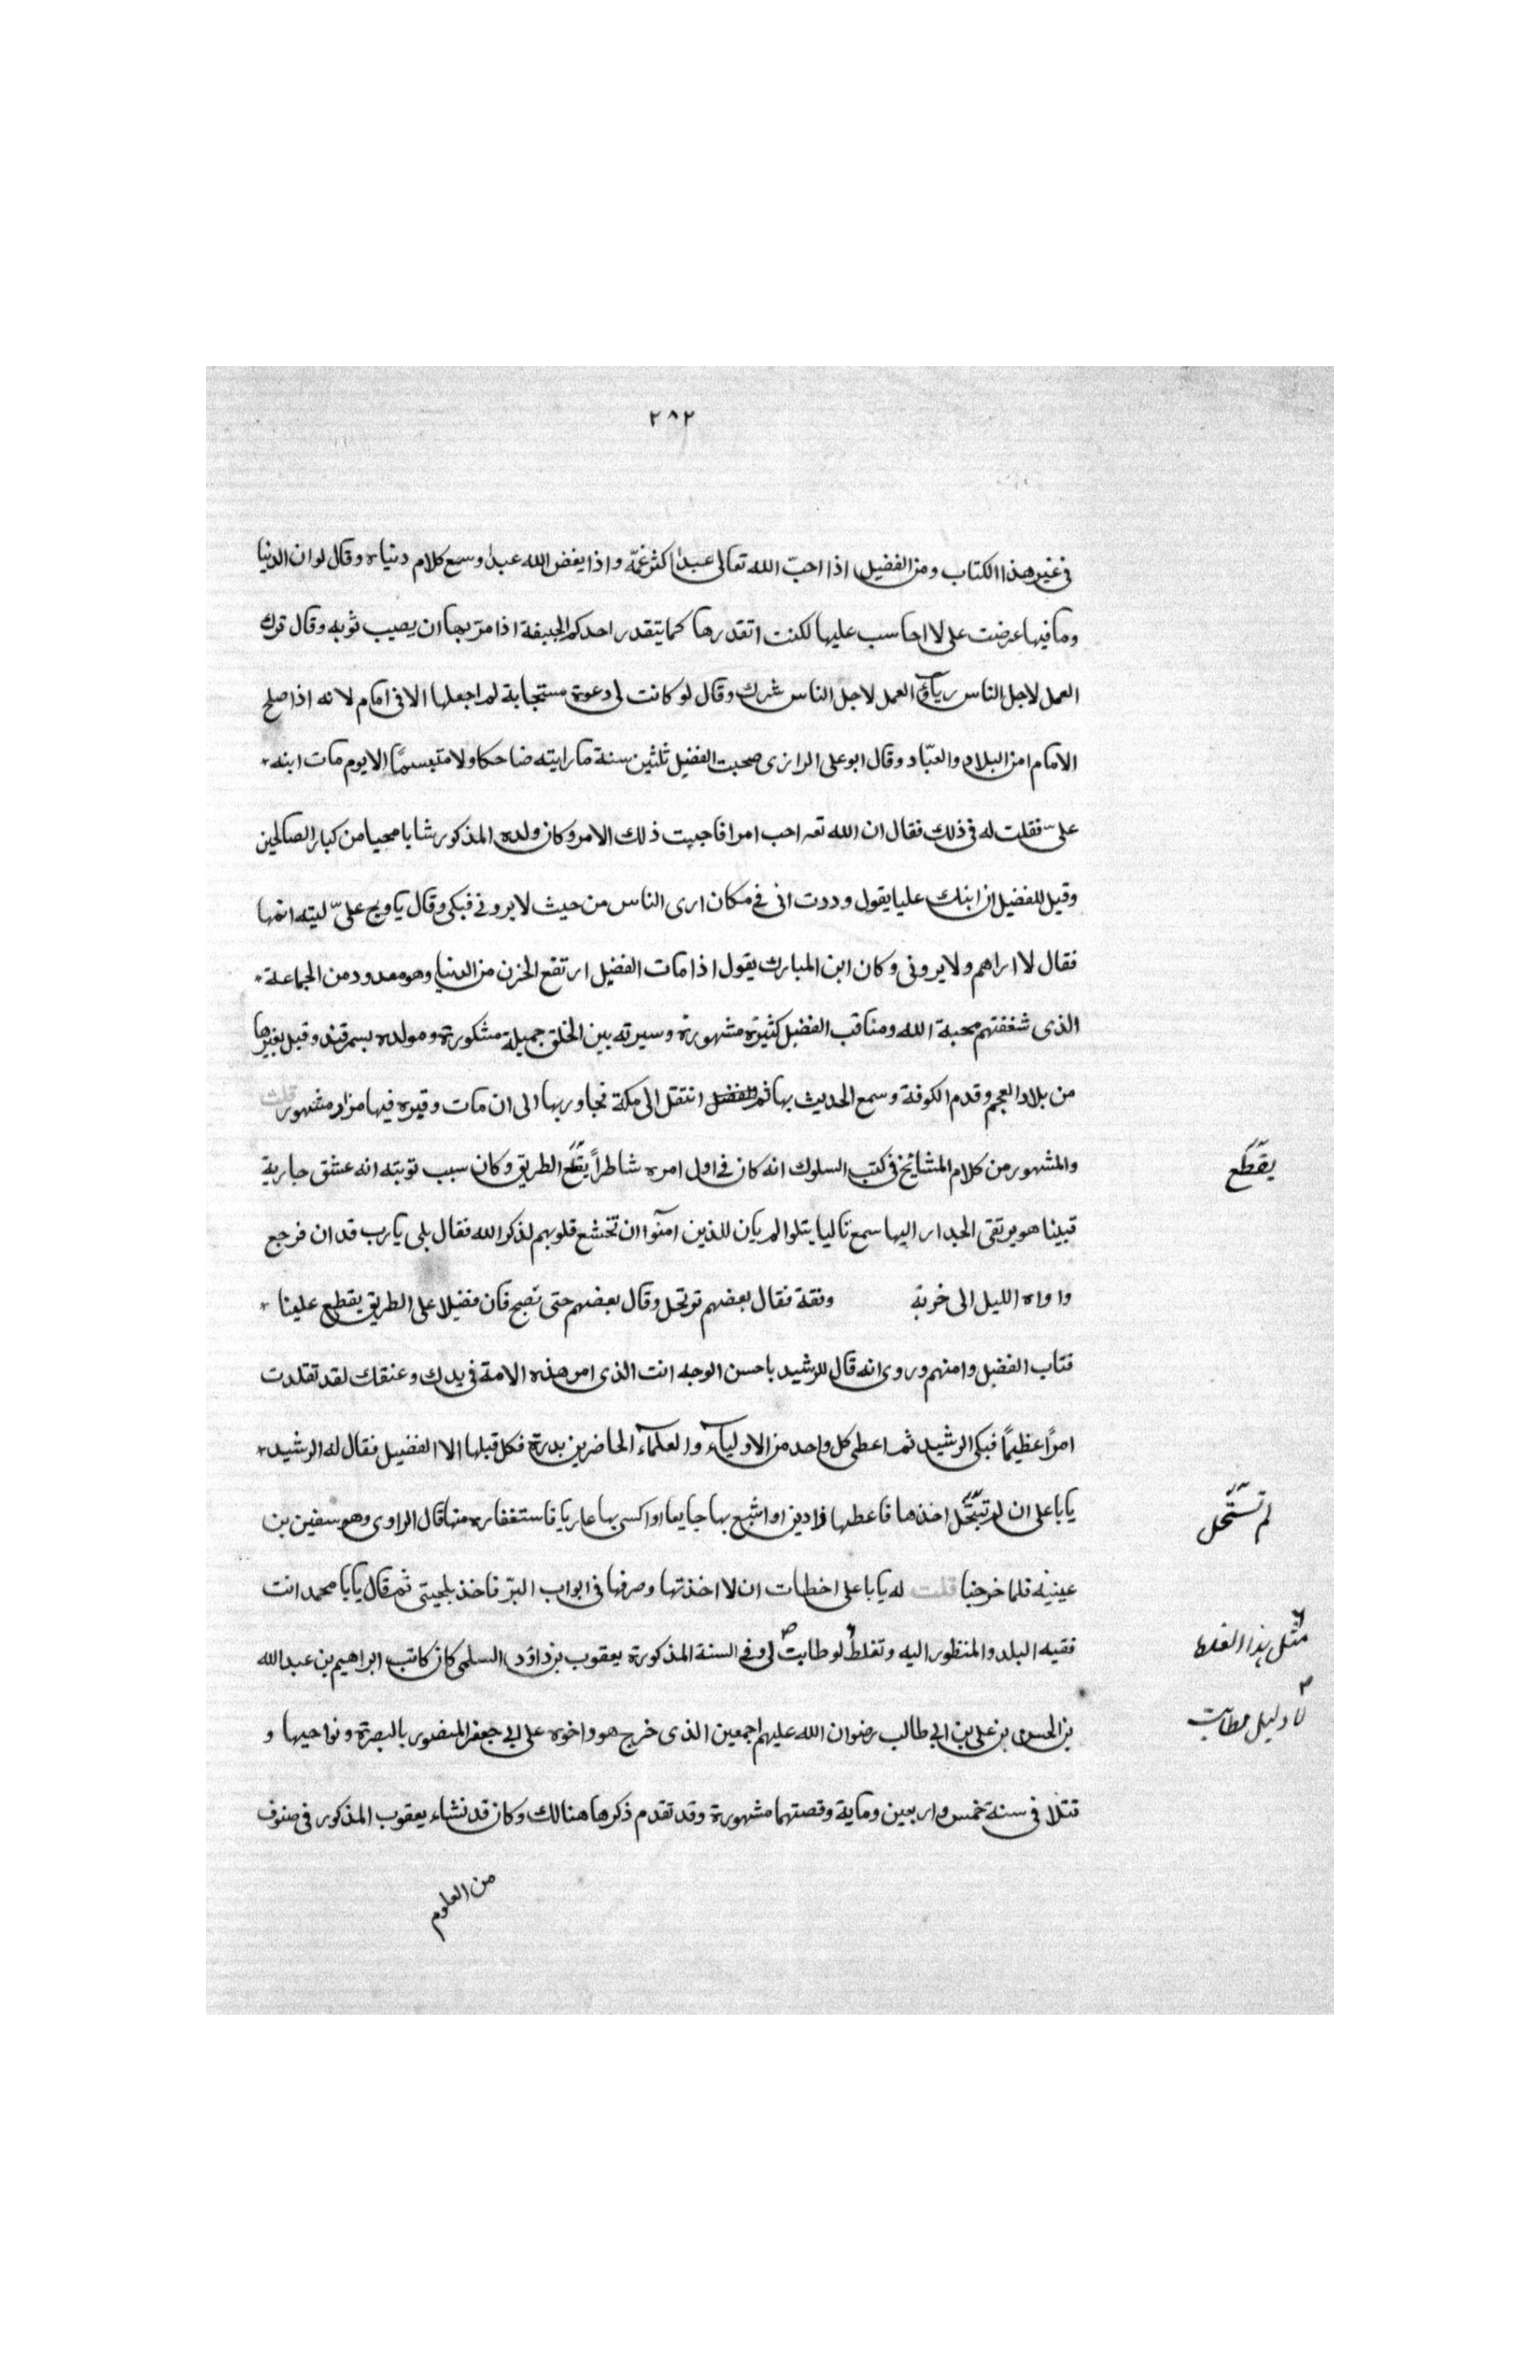 ٢٨٢
في غير هذا الكتاب ومن الفضيل اذا احبّ الله تعالى عبدا اكثر غمّه واذا يغض الله عبدا وسع كلام دنياه وقال لو ان الدنيا
وما فيها عرضت على لا احاسب عليها لكنت اتقدرها كما يتقدر احدكم الجيفة اذا مرّ بها ان يصيب ثوبه وقال ترك
العمل لاجل الناس رياء و العمل لاجل الناس شرك وقال لو كانت لي دعوة مستجابة لم اجعلها الا في امام لانه اذا صلح
الامام امن البلاد والعبّاد وقال ابو على الرازى صحبت الفضيل ثلثين سنة ما رايته ضاحكا ولا متبسمًا الا يوم مات ابنه
علىّ فقلت له في ذلك فقال ان الله تعه احب امرا فاحببت ذلك الامر وكان ولده المذكور شابا محيا من كبار الصالحين
وقيل للفضيل ان ابنك عليا يقول وددت انى في مكان ارى الناس من حيث لا يروني فبكى وقال ياويح علىّ ليته اتمها
فقال لا اراهم ولا يرونى وكان ابن المبارك يقول اذا مات الفضيل ارتفع الحزن من الدنيا وهو معدود من الجماعة
الذى شغفتهم محبة الله ومناقب الفضيل كثيرة مشهورة وسيرته بين الخلق جميلة مشكورة ومولده بسمرقند وقيل بغيرها
من بلاد العجم وقدم الكوفة وسمع الحديث بها ثم انتقل الى مكة فجاور بها الى ان مات وقبره فيها مزار مشهور قلت
والمشهور من كلام المشائخ في كتب السلوك انه كان في اول امره شاطراً يقطع الطريق وكان سبب توبته انه عشق جارية
يقطع
فبينا هو يرتقى الجدار اليها سمع تاليا يتلو الم يان للذين آمنوا ان تخشع قلوبهم لذكر الله فقال بلى يارب قد ان فرجع
واواه الليل الى خربة وثقة فقال بعضهم نرتحل وقال بعضهم حتى نصبح فان فضيلا على الطريق يقطع علينا
فتاب الفضيل وامنهم وروى انه قال للرشيد ياحسن الوجه انت الذى امر هذه الامة في يدك وعنقك لقد تقلدت
امرًا عظيمًا فبكى الرشيد ثم اعطى كل واحد من الاولياء والعلماء الحاضرين بدرة فكل قبلها الا الفضيل فقال له الرشيد
يابا على ان لم تستحل اخذها فاعطها ذا دين او اشبع بها جايعا او اكسى بها عاريا فاستغفاره منها قال الراوى وهو سفين بن
لم تستحل
عيينه فلما خرجنا قلت له يابا على اخطات ان لا اخذتها وصرفها في ابواب البرّ فاخذ بلحيتى ثم قال يابا محمد انت
فقيه البلد والمنظور اليه وتغلط لو طابت لي وفي السنة المذكورة يعقوب بن داؤد السلمى كان كاتب ابراهيم بن عبد الله
مثل هذا الغلط
بن الحسن بن على بن ابي طالب رضوان الله عليهم اجمعين الذى خرج هو واخوه على ابي جعفر المنصور بالبصرة ونواحيها و
قتلا في سنة خمس واربعين وماية وقصتهما مشهورة وقد تقدم ذكرها هنالك وكان قد نشاء يعقوب المذكور في صنوف
من العلوم